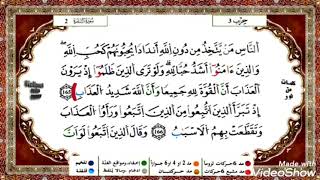 حِزْب 3
سُورَةُ البَقَرَة 2
اَلنَّاسِ مَنْ يَّتَّخِذُ مِن دُونِ اِ۬للَّهِ أَندَادا يُحِبُّونَهُمْ كَحُبِّ اِ۬للَّهِۖ
وَالذِينَ ءَامَنُوٓاْ أَشَدُّ حُبّا لِّلهِۖ وَلَوْ تَرَى اَ۬لذِينَ ظَلَمُوٓاْ إِذْ يَرَوْنَ
اَ۬لْعَذَابَ أَنَّ اَ۬لْقُوَّةَ لِلهِ جَمِيعا وَأَنَّ اَ۬للَّهَ شَدِيدُ اُ۬لْعَذَابِ 165
إِذْ تَبَرَّأَ اَ۬لذِينَ اَ۟تُّبِعُواْ مِنَ اَ۬لذِينَ اَ۪تَّبَعُواْ وَرَأَوُاْ اُ۬لْعَذَابَ
وَتَقَطَّعَتْ بِهِمُ اُ۬لَاسْبَٰبُ 166 وَقَالَ اَ۬لذِينَ اَ۪تَّبَعُواْ لَوَ اَنَّ
Made with
VideoShow